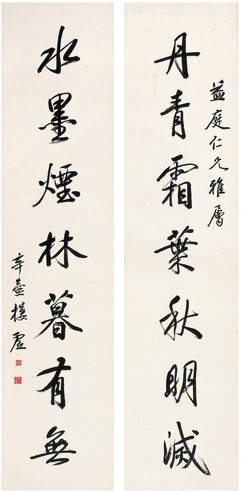 益庭仁兄雅屬
丹青霜葉秋明滅
水墨煙林暮有無
辛壺樓虛